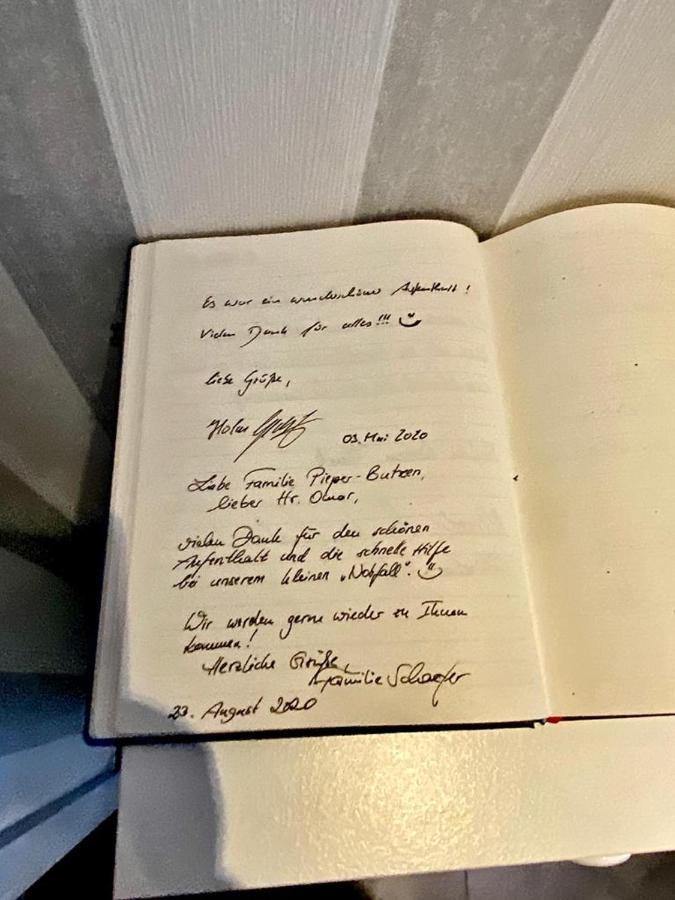 Es war ein wunderschöner Aufenthalt!
Vielen Dank für alles!!!
liebe Grüße,
Holm
03. Mai 2020
Liebe Familie Pieper-Butzen,
lieber Hr. Omar,
vielen Dank für den schönen
Aufenthalt und die schnelle Hilfe
bei unserem kleinen „Notfall".
Wir werden gerne wieder zu Ihnen
kommen!
Herzliche Grüße,
Familie Schaefer
23. August 2020